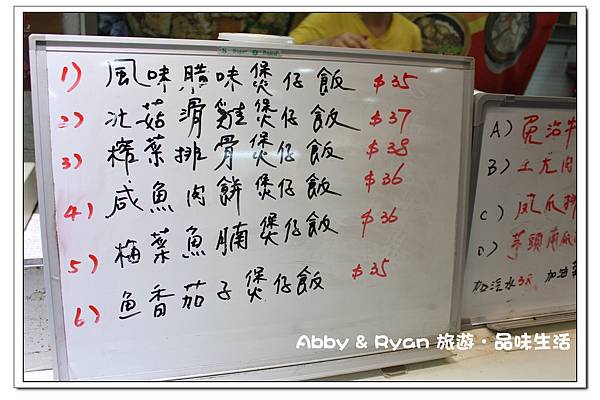 1) 風味腊味煲仔飯 $35
2) 北菇滑雞煲仔飯 $37
3) 榨菜排骨煲仔飯 $38
4) 咸魚肉餅煲仔飯 $36
5) 梅菜魚腩煲仔飯 $36
6) 魚香茄子煲仔飯 $35
A)
B) 土尤肉
C) 鳳爪排
D) 芋頭南瓜
加汽水3元 加油菜
Abby & Ryan 旅遊·品味生活